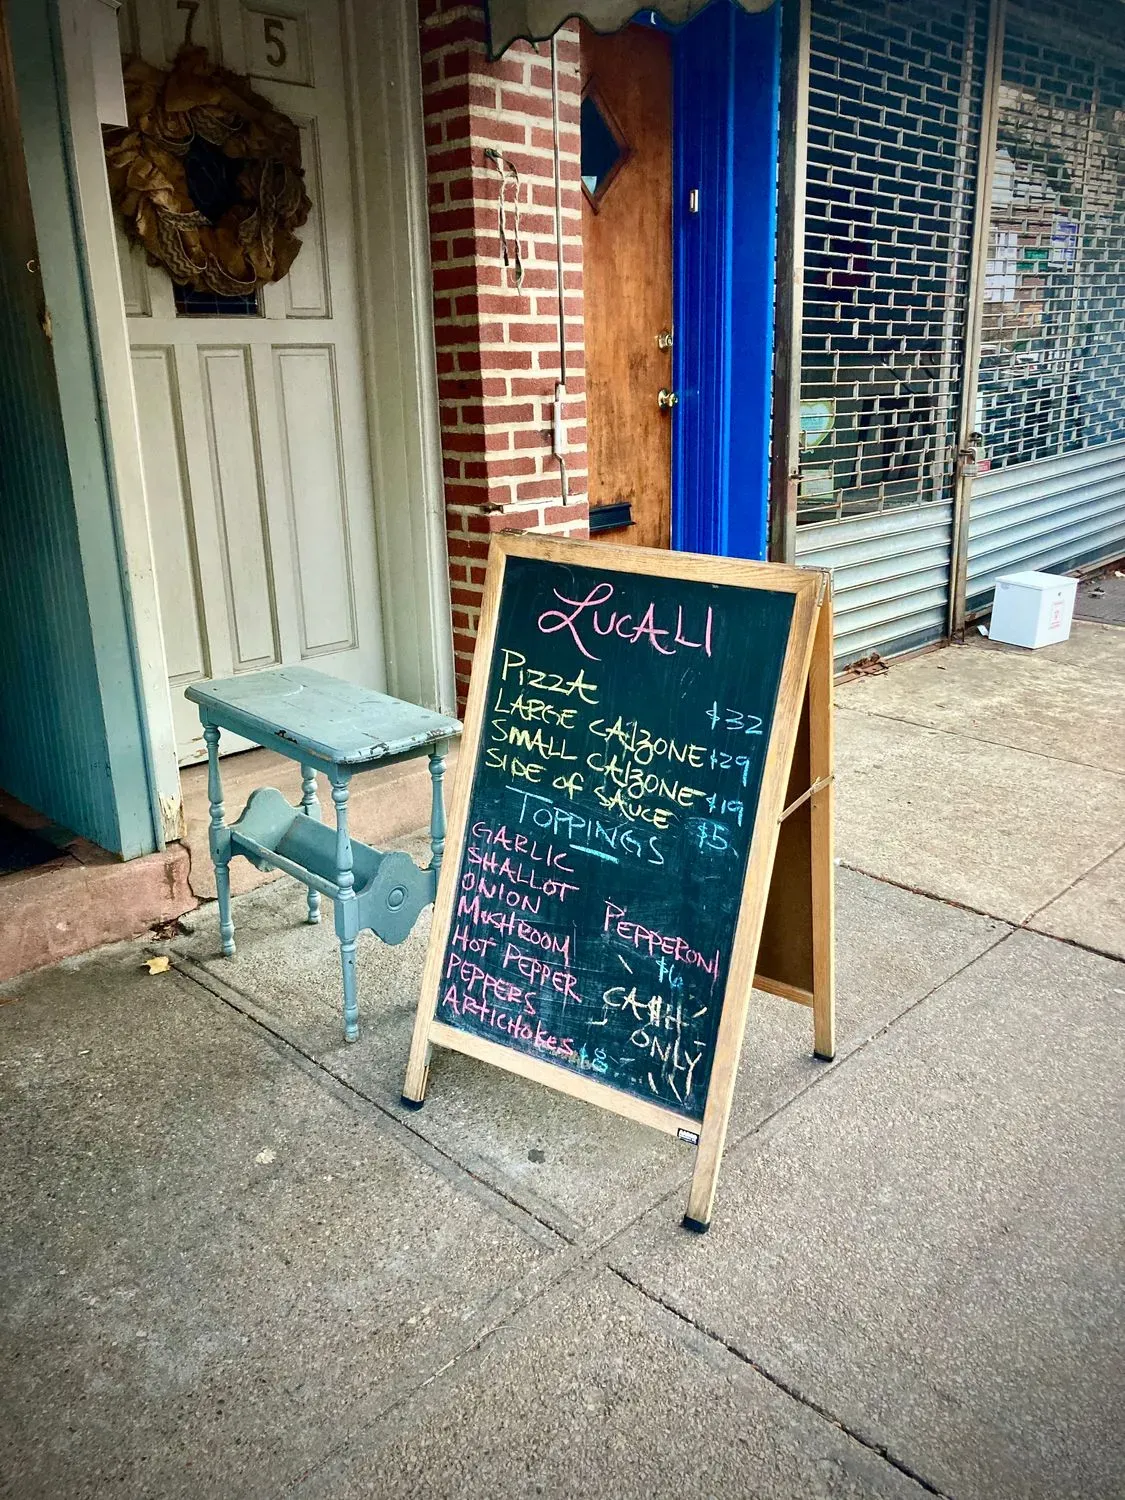 75
LUCALI
PIZZA $32
LARGE CALZONE $29
SMALL CALZONE $19
SIDE OF SAUCE $5
TOPPINGS
GARLIC
SHALLOT
ONION
MUSHROOM
HOT PEPPER
PEPPERS
ARTICHOKES $8
PEPPERONI
$6
CASH
ONLY